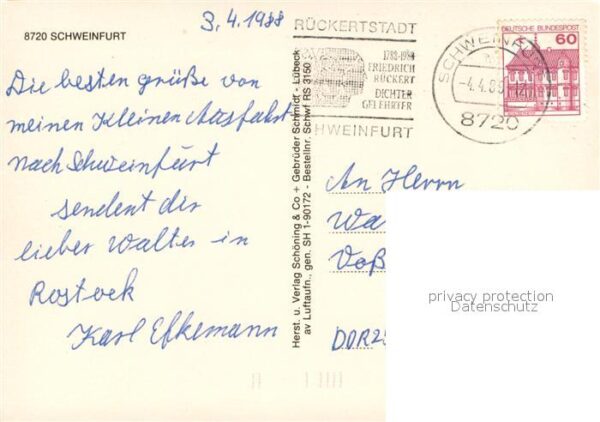 8720 SCHWEINFURT
3.4.1988
Die besten grüße von
meinen Kleinen Ausfahrt
nach Schweinfurt
sendent dir
lieber Walter in
Rostock
Karl Efkemann
Herst. u. Verlag Schöning & Co + Gebrüder Schmidt - Lübeck
av Luftaufn., gen. SH 1-90172 - Bestellnr. Schwf RS 3150
RÜCKERTSTADT
1788-1988
FRIEDRICH
RÜCKERT
DICHTER
GELEHRTER
SCHWEINFURT
SCHWEINFURT
-4.4.88
8720
DEUTSCHE BUNDESPOST
60
An Herrn
Wa
Voß
DDR 25
privacy protection
Datenschutz